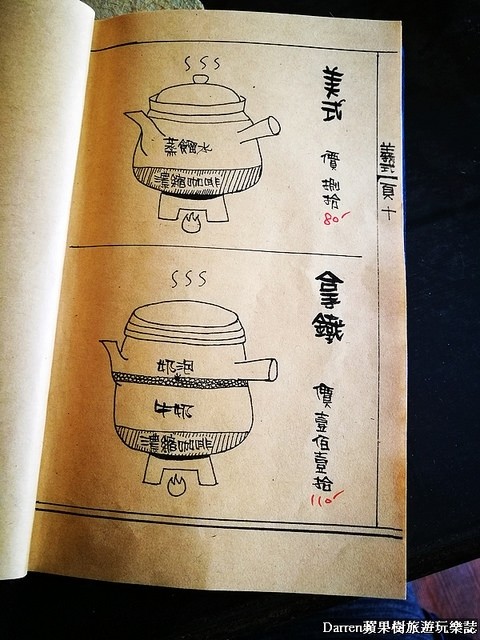 美式
價捌拾
80
蒸餾水
濃縮咖啡
義式
頁十
拿鐵
價壹佰壹拾
110
奶泡
牛奶
濃縮咖啡
Darren蘋果樹旅遊玩樂誌